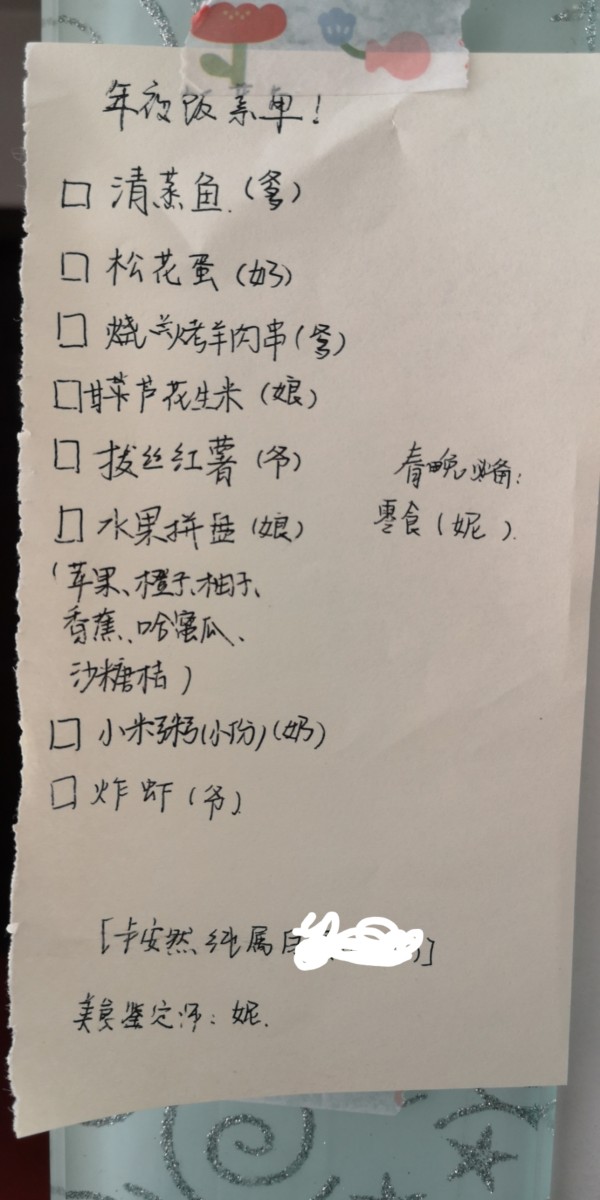 年夜饭菜单!
清蒸鱼.(爹)
松花蛋(奶)
烧烤羊肉串(爹)
芦花生米(娘)
拔丝红薯(爷)
春晚必备:
水果拼盘(娘)
零食(妮).
(苹果、橙子、柚子、
香蕉、哈蜜瓜、
沙糖桔)
小米粥(小份)(奶)
炸虾(爷)
[卡安然纯属
美食鉴定师:妮.